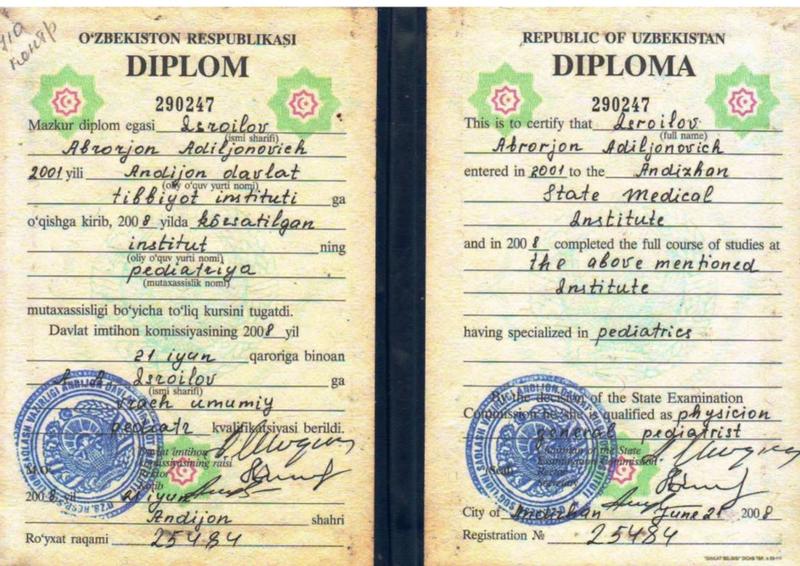 O‘ZBEKISTON RESPUBLIKASI
DIPLOM
290247
Mazkur diplom egasi Isroilov
(ismi sharifi)
Abrorjon Adiljonovich
2001 yili Andijon davlat
(oliy o‘quv yurti nomi)
tibbiyot instituti ga
o‘qishga kirib, 2008 yilda ko‘rsatilgan
institut ning
(oliy o‘quv yurti nomi)
pediatriya
(mutaxassislik nomi)
mutaxassisligi bo‘yicha to‘liq kursini tugatdi.
Davlat imtihon komissiyasining 2008 yil
21 iyun qaroriga binoan
Isroilov ga
(ismi sharifi)
vrach umumiy
pediatr kvalifikatsiyasi berildi.
Davlat imtihon
komissiyasining raisi
Rektor
Kotib
M.O.
2008 yil 21 iyun
Andijon shahri
Ro‘yxat raqami 25484
REPUBLIC OF UZBEKISTAN
DIPLOMA
290247
This is to certify that Isroilov
(full name)
Abrorjon Adiljonovich
entered in 2001 to the Andizhan
State Medical
Institute
and in 2008 completed the full course of studies at
the above mentioned
Institute
having specialized in pediatrics
By the decision of the State Examination
Commission he/she is qualified as physicion
general pediatrist
Chairman of the State
Examination Commission
Secretary
(Seal)
City of Andizhan June 21 2008
Registration № 25484